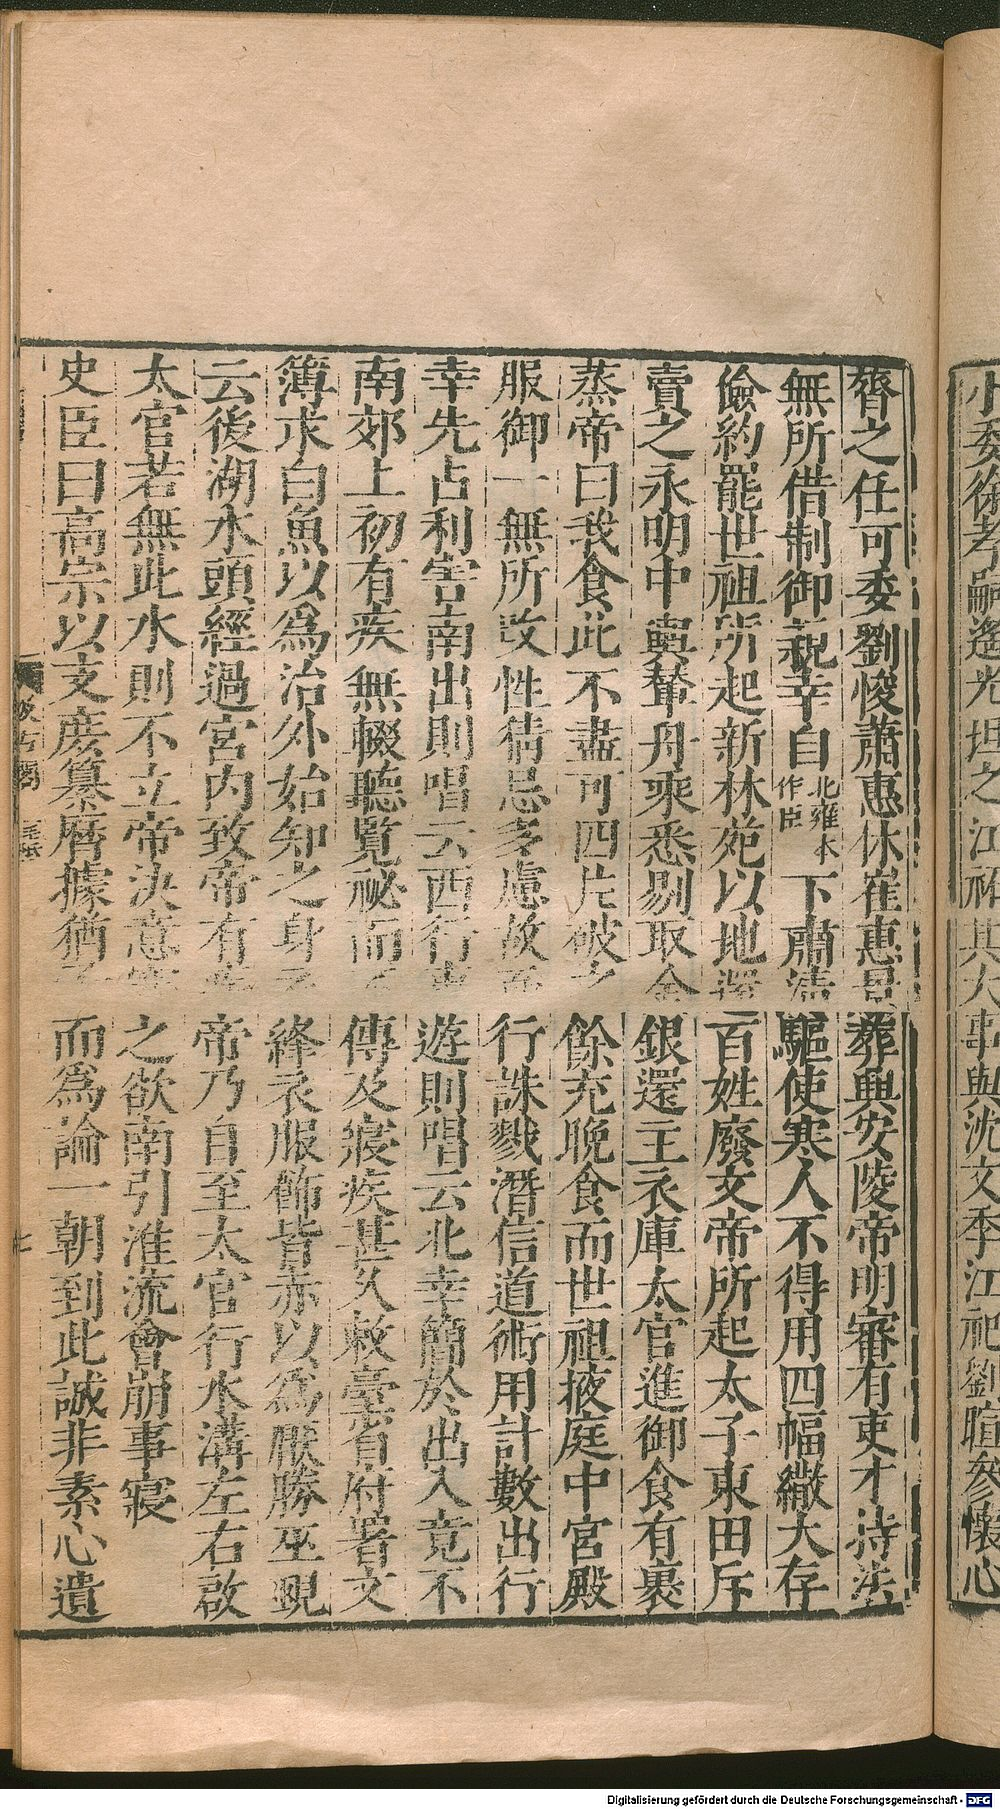 小委徐孝嗣遙光坦之江祏其大事與沈文季江祀劉暄參懷心
膂之任可委劉悛蕭惠休崔惠景葬興安陵帝明審有吏才持法
無所借制御親幸自北雍本作臣下肅清驅使寒人不得用四幅繖大存
儉約罷世祖所起新林苑以地還百姓廢文帝所起太子東田斥
賣之永明中輿輦舟乘悉剔取金銀還主衣庫太官進御食有裹
蒸帝曰我食此不盡可四片破之餘充晚食而世祖掖庭中宮殿
服御一無所改性猜忌多慮故亟行誅戮潛信道術用計數出行
幸先占利害南出則唱云西行東遊則唱云北幸簡於出入竟不
南郊上初有疾無輟聽覽祕而不傳及寢疾甚久敕臺省府署文
簿求白魚以爲治外始知之身衣絳衣服飾皆赤以爲厭勝巫覡
云後湖水頭經過宮內致帝有疾帝乃自至太官行水溝左右啟
太官若無此水則不立帝決意塞之欲南引淮流會崩事寢
史臣曰高宗以支庶纂曆據猶子而爲論一朝到此誠非素心遺
七
Digitalisierung gefördert durch die Deutsche Forschungsgemeinschaft - DFG